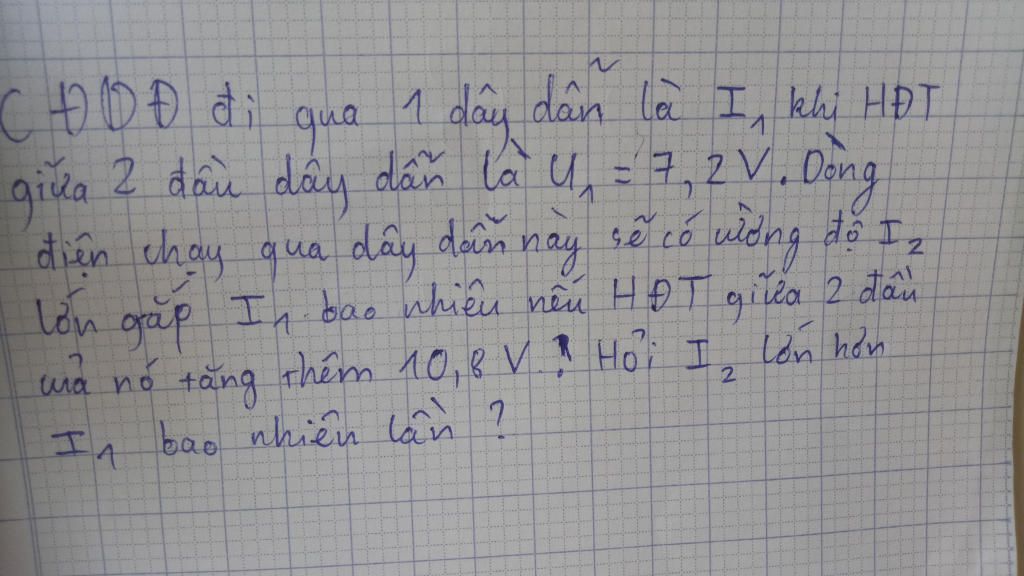 CĐDĐ đi qua 1 dây dẫn là I₁ khi HĐT
giữa 2 đầu dây dẫn là U₁ = 7,2 V. Dòng
điện chạy qua dây dẫn này sẽ có cường độ I₂
lớn gấp I₁ bao nhiêu nếu HĐT giữa 2 đầu
của nó tăng thêm 10,8 V. Hỏi I₂ lớn hơn
I₁ bao nhiêu lần ?